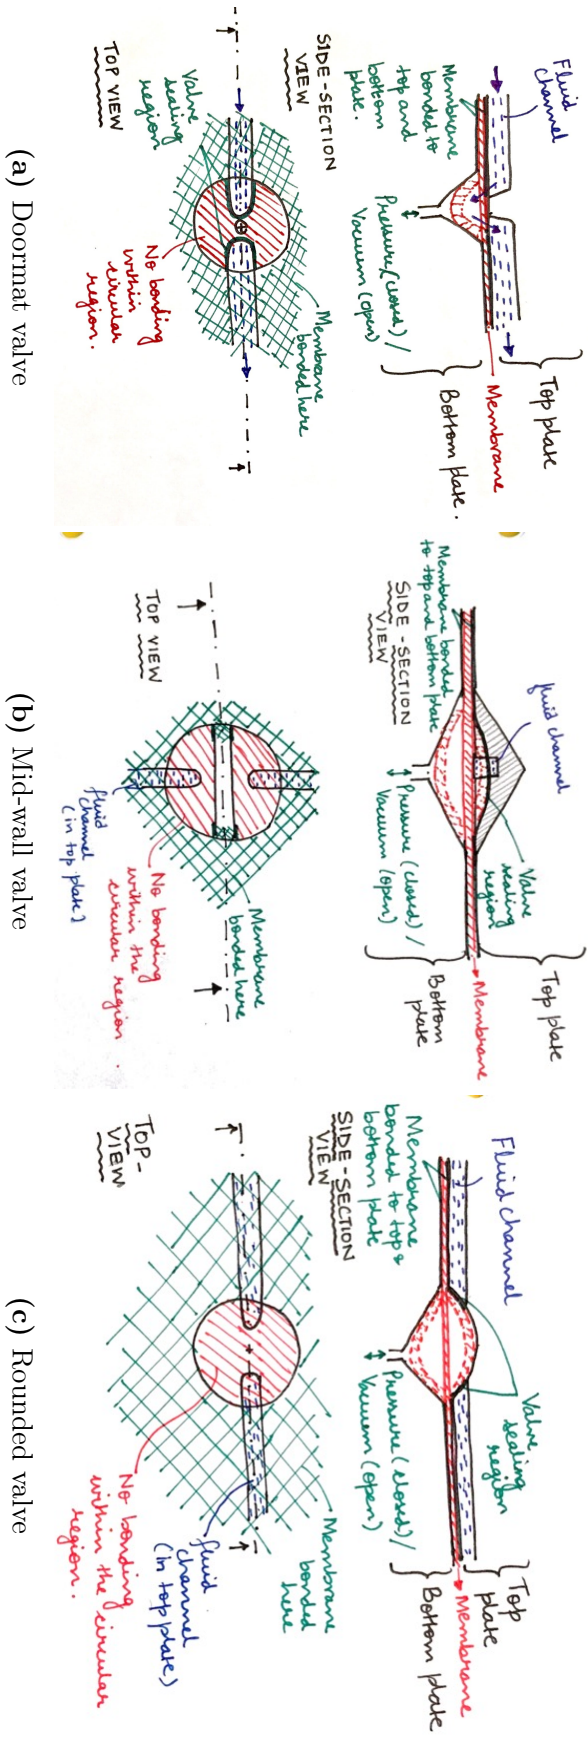 Fluid
channel
Membrane
bonded to
top and
bottom
plate.
Pressure (closed) /
Vacuum (open)
Top plate
Membrane
Bottom plate.
SIDE-SECTION
VIEW
Valve
sealing
region
TOP VIEW
Membrane
bonded here
No bonding
within
circular
region.
(a) Doormat valve
fluid channel
Membrane bonded
to top and bottom plate
SIDE-SECTION
VIEW
Valve
sealing
region
Pressure (closed) /
Vacuum (open)
Top plate
Membrane
Bottom
plate
TOP VIEW
fluid
channel
(in top plate)
Membrane
bonded here
No bonding
within the
circular region.
(b) Mid-wall valve
Fluid channel
Membrane
bonded to top &
bottom plate
SIDE-SECTION
VIEW
Valve
sealing
region
Pressure (closed) /
Vacuum (open)
Top
plate
Membrane
Bottom plate
TOP-
VIEW
Membrane
bonded
here
fluid
channel
(in top plate)
No bonding
within the circular
region.
(c) Rounded valve